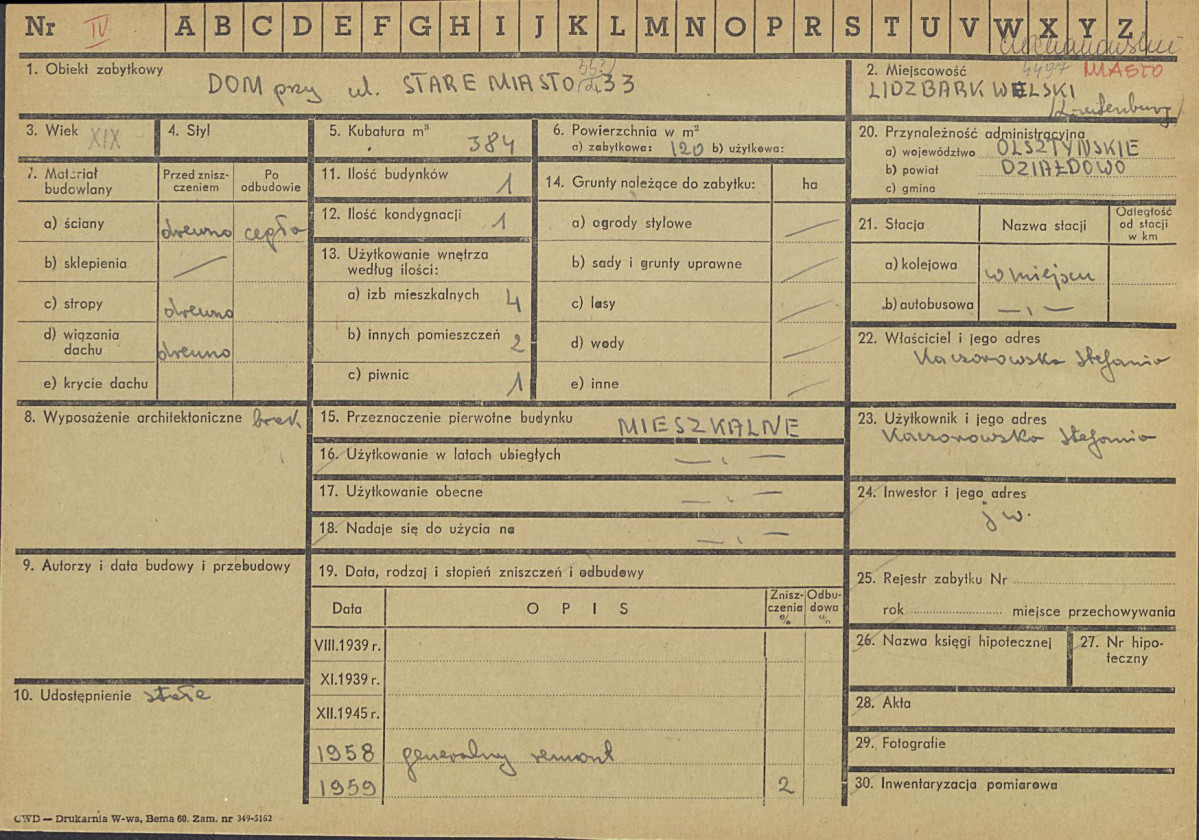 Nr IV A B C D E F G H I J K L M N O P R S T U V W X Y Z
1. Obiekt zabytkowy
DOM przy ul. STARE MIASTO 33
2. Miejscowość 4497 MIASTO
LIDZBARK WELSKI
3. Wiek XIX
4. Styl
5. Kubatura m³
384
6. Powierzchnia w m²
a) zabytkowa: 120 b) użytkowa:
7. Materiał budowlany
Przed znisz-
czeniem
Po
odbudowie
a) ściany drewno cegła
b) sklepienia —
c) stropy drewno
d) wiązania
dachu drewno
e) krycie dachu
8. Wyposażenie architektoniczne brak
9. Autorzy i data budowy i przebudowy
10. Udostępnienie stałe
11. Ilość budynków 1
12. Ilość kondygnacji 1
13. Użytkowanie wnętrza
według ilości:
a) izb mieszkalnych 4
b) innych pomieszczeń 2
c) piwnic 1
14. Grunty należące do zabytku: ha
a) ogrody stylowe —
b) sady i grunty uprawne —
c) lasy —
d) wody —
e) inne —
15. Przeznaczenie pierwotne budynku MIESZKALNE
16. Użytkowanie w latach ubiegłych — „ —
17. Użytkowanie obecne — „ —
18. Nadaje się do użycia na — „ —
19. Data, rodzaj i stopień zniszczeń i odbudowy
Data OPIS Znisz-
czenia
%
Odbu-
dowa
%
VIII.1939 r.
XI.1939 r.
XII.1945 r.
1958 generalny remont
1959 2
20. Przynależność administracyjna
a) województwo OLSZTYŃSKIE
b) powiat DZIAŁDOWO
c) gmina
21. Stacja Nazwa stacji Odległość
od stacji
w km
a) kolejowa w miejscu
b) autobusowa — „ —
22. Właściciel i jego adres
Kaczorowska Stefania
23. Użytkownik i jego adres
Kaczorowska Stefania
24. Inwestor i jego adres
j w.
25. Rejestr zabytku Nr
rok miejsce przechowywania
26. Nazwa księgi hipotecznej
27. Nr hipo-
teczny
28. Akta
29. Fotografie
30. Inwentaryzacja pomiarowa
CWD — Drukarnia W-wa, Bema 60. Zam. nr 349-5162